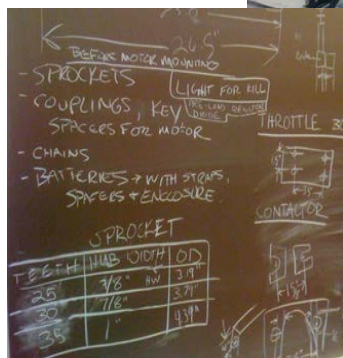 26.5"
BEFORE MOTOR MOUNTING
- SPROCKETS
LIGHT FOR KILL
- COUPLINGS, KEY
PRE-LOAD RESISTOR
DIODE
SPACERS FOR MOTOR
THROTTLE
- CHAINS
- BATTERIES → WITH STRAPS,
SPACERS + ENCLOSURE
CONTACTOR
SPROCKET
TEETH HUB WIDTH OD
25 7/8" HW 3.19"
30 7/8" 3.79"
35 1" 4.39"